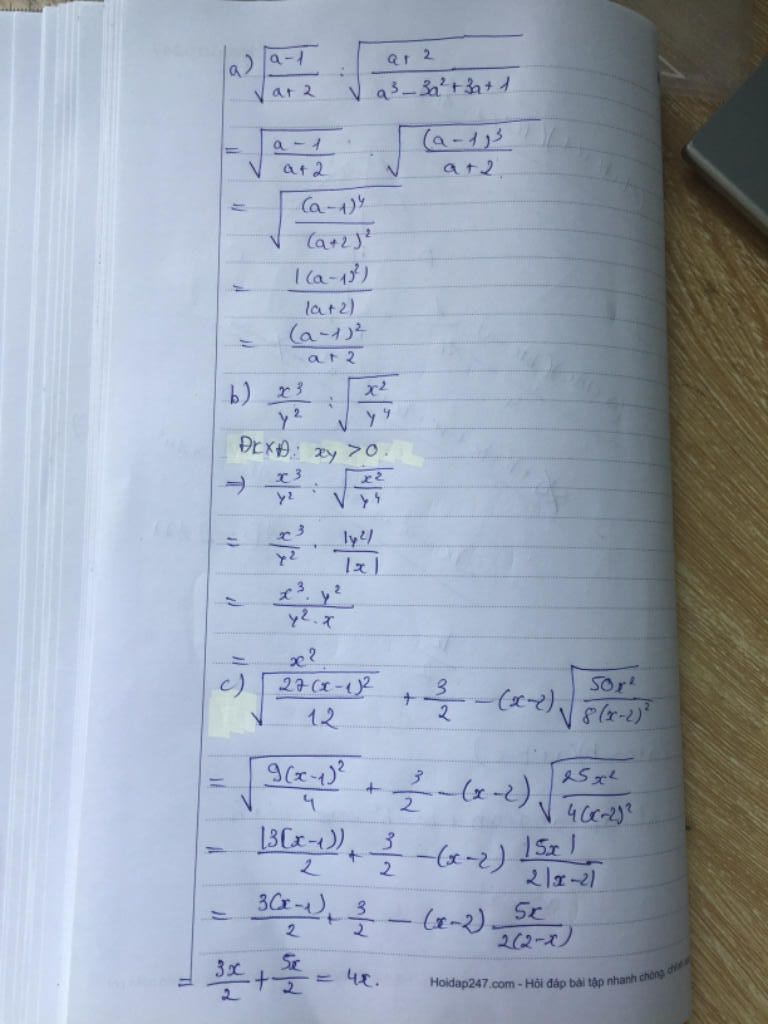 a) √((a-1)/(a+2)) : √((a+2)/(a³-3a²+3a+1))
= √((a-1)/(a+2)) . √((a-1)³/(a+2))
= √((a-1)⁴/(a+2)²)
= |(a-1)²|/|a+2|
= (a-1)²/(a+2)
b) x³/y² : √(x²/y⁴)
ĐKXĐ: xy > 0.
=> x³/y² : √(x²/y⁴)
= x³/y² . |y²|/|x|
= (x³.y²)/(y².x)
= x².
c) √(27(x-1)²/12) + 3/2 - (x-2)√(50x²/(8(x-2)²))
= √(9(x-1)²/4) + 3/2 - (x-2)√(25x²/(4(x-2)²))
= |3(x-1)|/2 + 3/2 - (x-2) |5x|/(2|x-2|)
= 3(x-1)/2 + 3/2 - (x-2) 5x/(2(2-x))
= 3x/2 + 5x/2 = 4x.
Hoidap247.com - Hỏi đáp bài tập nhanh chóng,